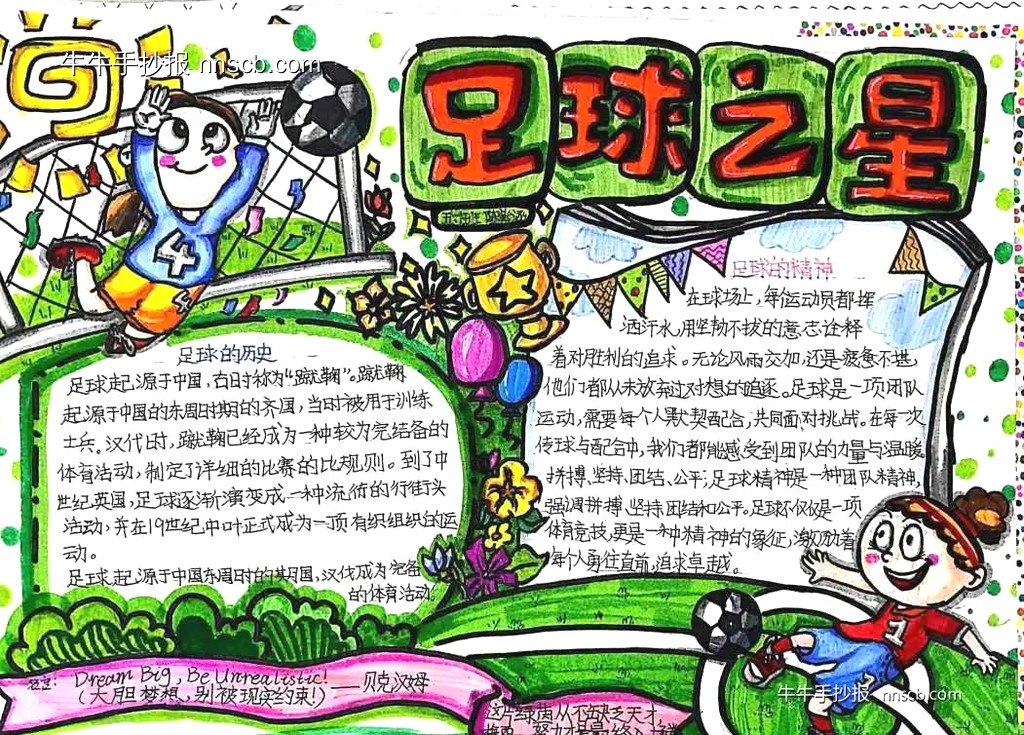 牛牛手抄报 nnscb.com
足球之星
4
足球的历史
足球起源于中国,古时称为“蹴鞠”。蹴鞠
起源于中国的东周时期的齐国,当时被用于训练
士兵。汉代时,蹴鞠已经成为一种较为完结备的
体育活动,制定了详细的比赛的比规则。到了中
世纪英国,足球逐渐演变成一种流俗的行街头
活动,并在19世纪中叶正式成为一项有织组织的运
动。
足球起源于中国东周时的期国,汉伐成为完备
的体育活动。
足球的精神
在球场上,每位运动员都挥
洒汗水,用坚韧不拔的意志诠释
着对胜利的追求。无论风雨交加,还是疲惫不堪,
他们都从未放弃过对想的追逐。足球是一项团队
运动,需要每个人默契配合,共同面对挑战。在每一次
传球与配合中,我们都能感受到团队的力量与温暖
拼搏、坚持、团结、公平;足球精神是一种团队精神,
强调拼搏、坚持、团结和公平。足球不仅仅是一项
体育竞技,更是一种精神的象征,激励着
每个人勇往直前,追求卓越。
1
Dream Big, Be Unrealistic!
(大胆梦想,别被现实约束!)——贝克汉姆
这片绿茵从不缺乏天才,
牛牛手抄报 nnscb.com